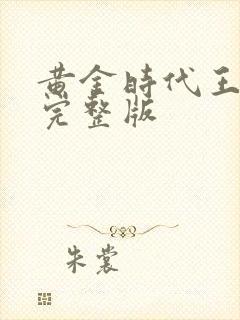 黄金時代王
完整版
朱裳